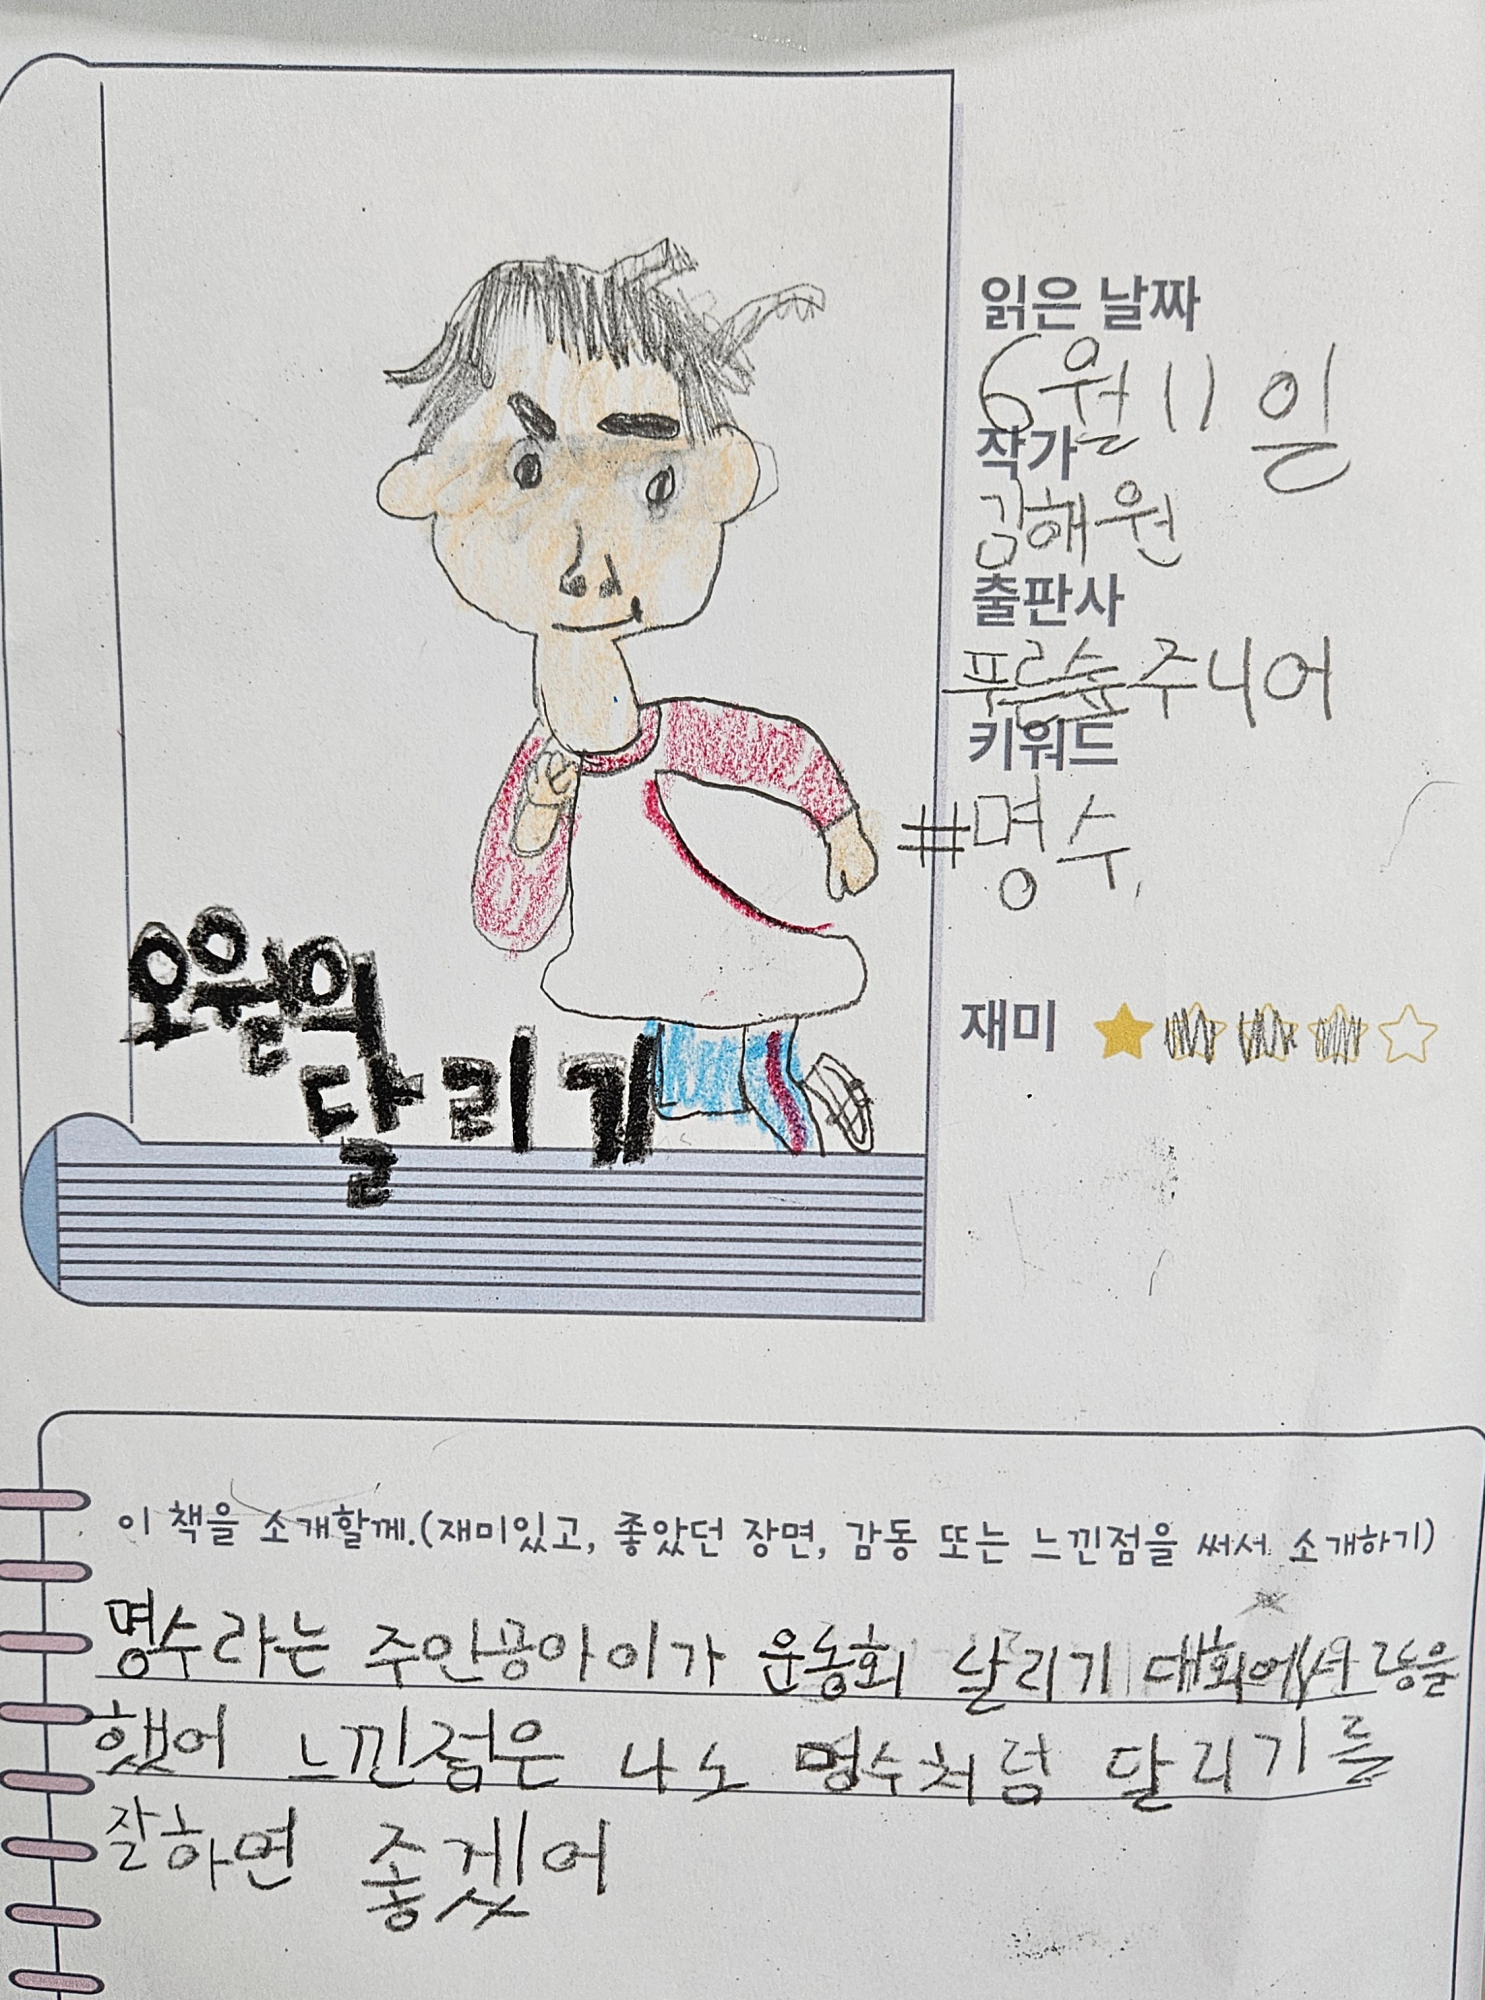 읽은 날짜
6월 11일
작가
김해원
출판사
푸른숲주니어
키워드
#명수
재미
오월의
달리기
이 책을 소개할께.(재미있고, 좋았던 장면, 감동 또는 느낀점을 써서 소개하기)
명수라는 주인공아이가 운동회 달리기 대회에서
했어 느낀점은 나노 명수처럼 달리기를
잘하면 좋겠어